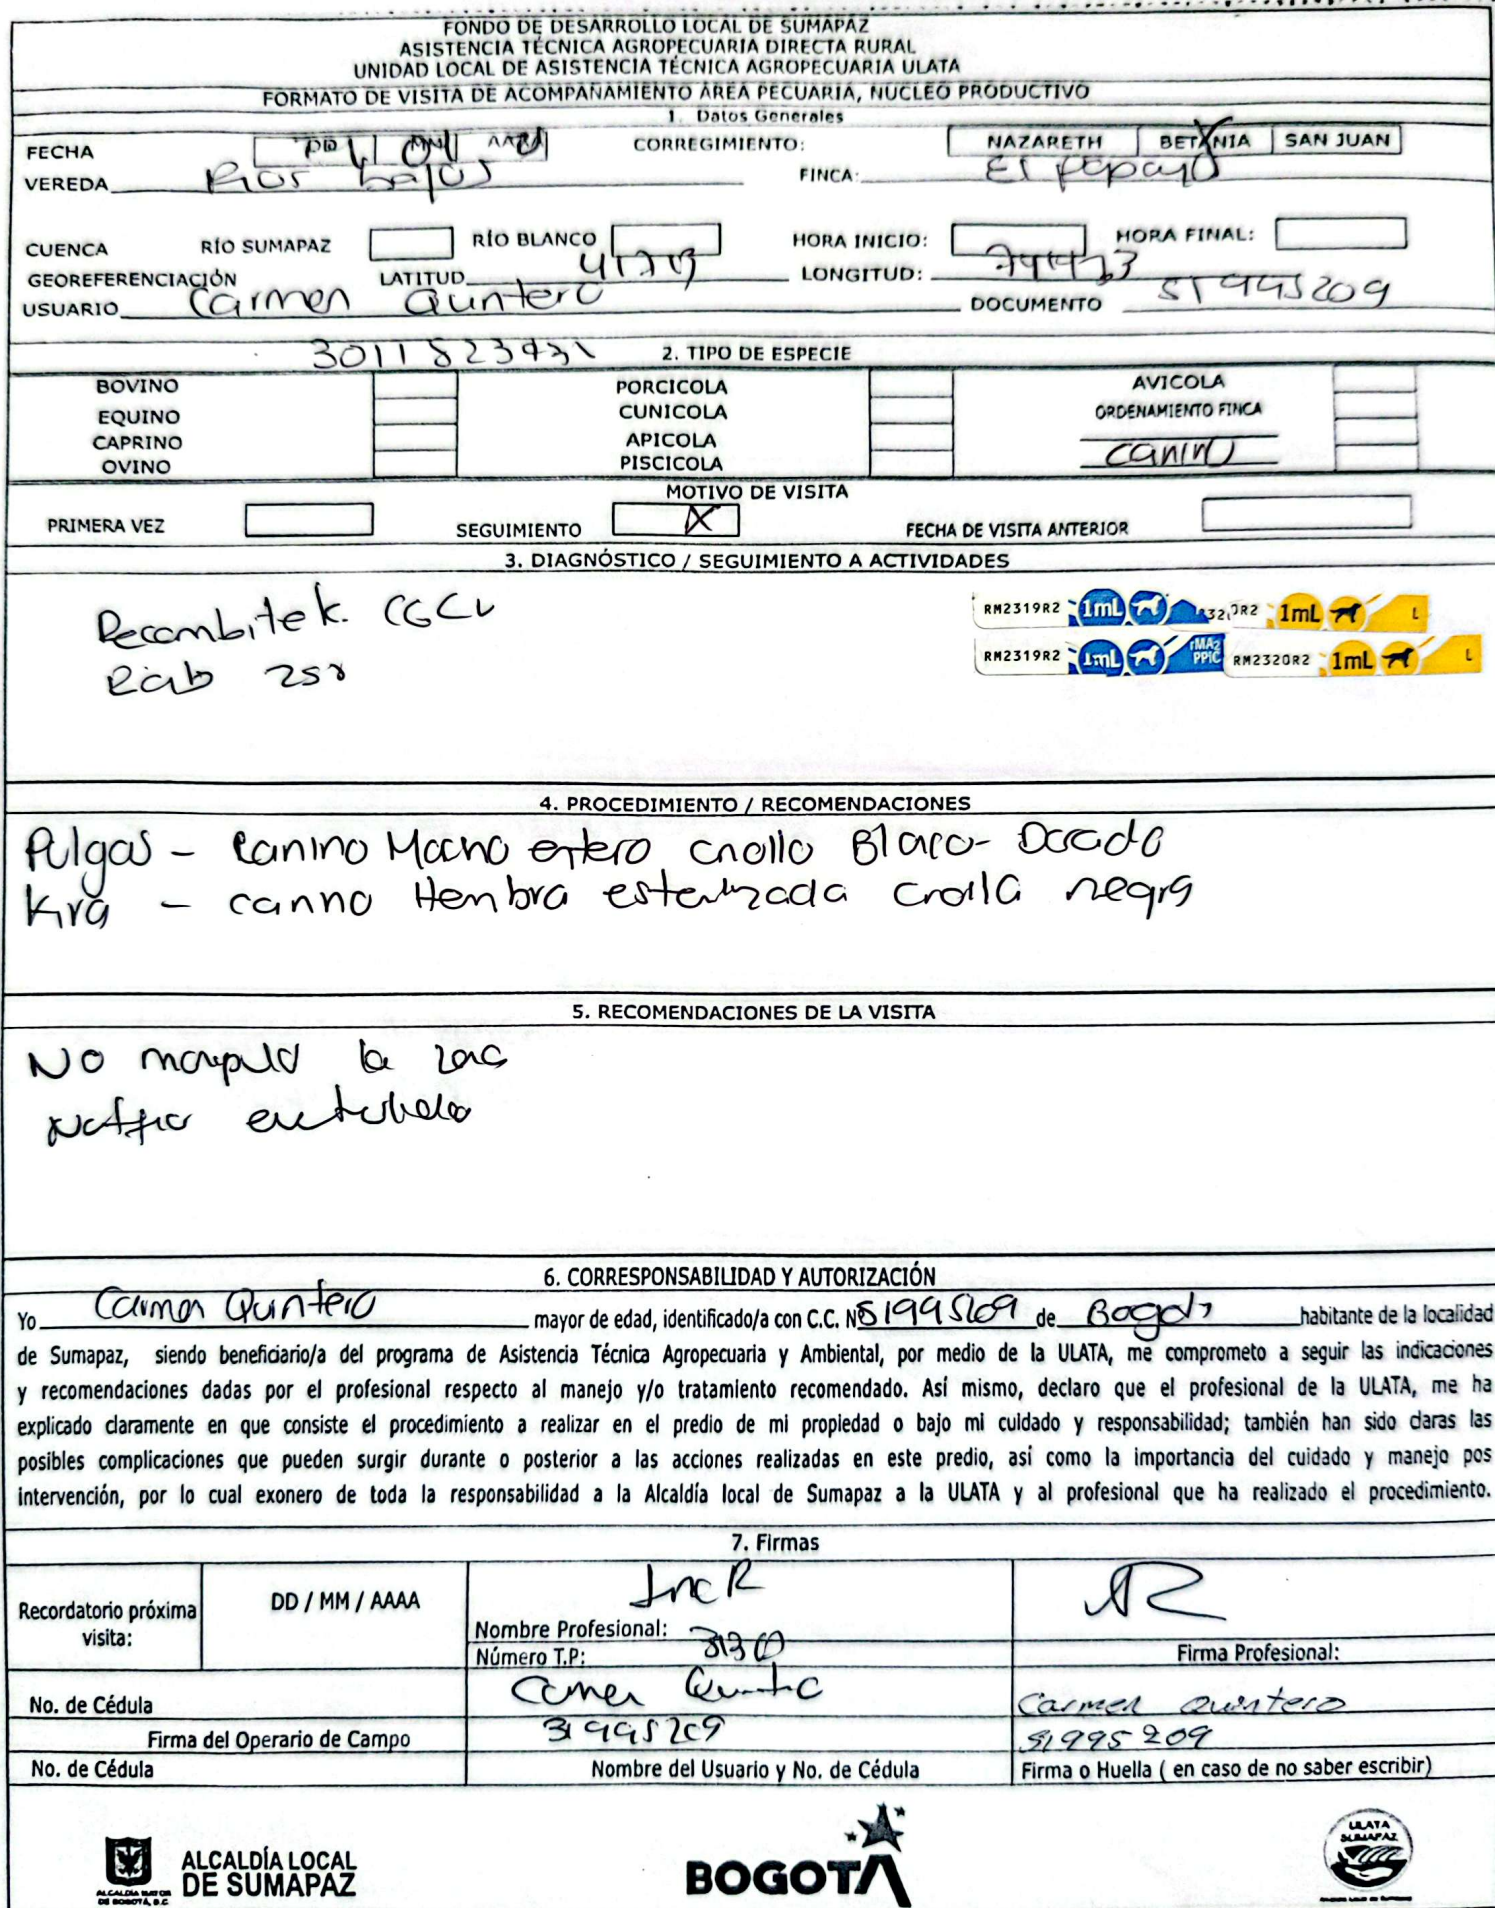 FONDO DE DESARROLLO LOCAL DE SUMAPAZ
ASISTENCIA TÉCNICA AGROPECUARIA DIRECTA RURAL
UNIDAD LOCAL DE ASISTENCIA TÉCNICA AGROPECUARIA ULATA
FORMATO DE VISITA DE ACOMPAÑAMIENTO ÁREA PECUARIA, NUCLEO PRODUCTIVO
1. Datos Generales
FECHA DD MM AAAA CORREGIMIENTO: NAZARETH BETANIA X SAN JUAN
VEREDA Rios bajos FINCA: El papayo
CUENCA RÍO SUMAPAZ RÍO BLANCO HORA INICIO: HORA FINAL:
GEOREFERENCIACIÓN LATITUD LONGITUD:
USUARIO Carmen Quintero DOCUMENTO 51995209
2. TIPO DE ESPECIE
BOVINO PORCICOLA AVICOLA
EQUINO CUNICOLA ORDENAMIENTO FINCA
CAPRINO APICOLA canino
OVINO PISCICOLA
MOTIVO DE VISITA
PRIMERA VEZ SEGUIMIENTO X FECHA DE VISITA ANTERIOR
3. DIAGNÓSTICO / SEGUIMIENTO A ACTIVIDADES
Recombitek. C6CV
RM2319R2 1mL 1mL L
RM2319R2 1mL RM2320R2 1mL L
4. PROCEDIMIENTO / RECOMENDACIONES
Pulgas - Canino Macho entero criollo Blanco-Dorado
Kira - canino Hembra esterilizada criolla negra
5. RECOMENDACIONES DE LA VISITA
No la zona
6. CORRESPONSABILIDAD Y AUTORIZACIÓN
Yo Carmen Quintero mayor de edad, identificado/a con C.C. Nº 51995209 de Bogotá habitante de la localidad
de Sumapaz, siendo beneficiario/a del programa de Asistencia Técnica Agropecuaria y Ambiental, por medio de la ULATA, me comprometo a seguir las indicaciones
y recomendaciones dadas por el profesional respecto al manejo y/o tratamiento recomendado. Así mismo, declaro que el profesional de la ULATA, me ha
explicado claramente en que consiste el procedimiento a realizar en el predio de mi propiedad o bajo mi cuidado y responsabilidad; también han sido claras las
posibles complicaciones que pueden surgir durante o posterior a las acciones realizadas en este predio, así como la importancia del cuidado y manejo pos
intervención, por lo cual exonero de toda la responsabilidad a la Alcaldía local de Sumapaz a la ULATA y al profesional que ha realizado el procedimiento.
7. Firmas
Recordatorio próxima visita: DD / MM / AAAA
Nombre Profesional:
Número T.P: Firma Profesional:
No. de Cédula Carmen Quintero Carmen Quintero
Firma del Operario de Campo 51995209 51995209
No. de Cédula Nombre del Usuario y No. de Cédula Firma o Huella ( en caso de no saber escribir)
ALCALDÍA MAYOR DE BOGOTÁ, D.C. ALCALDÍA LOCAL DE SUMAPAZ
BOGOTÁ
ULATA SUMAPAZ